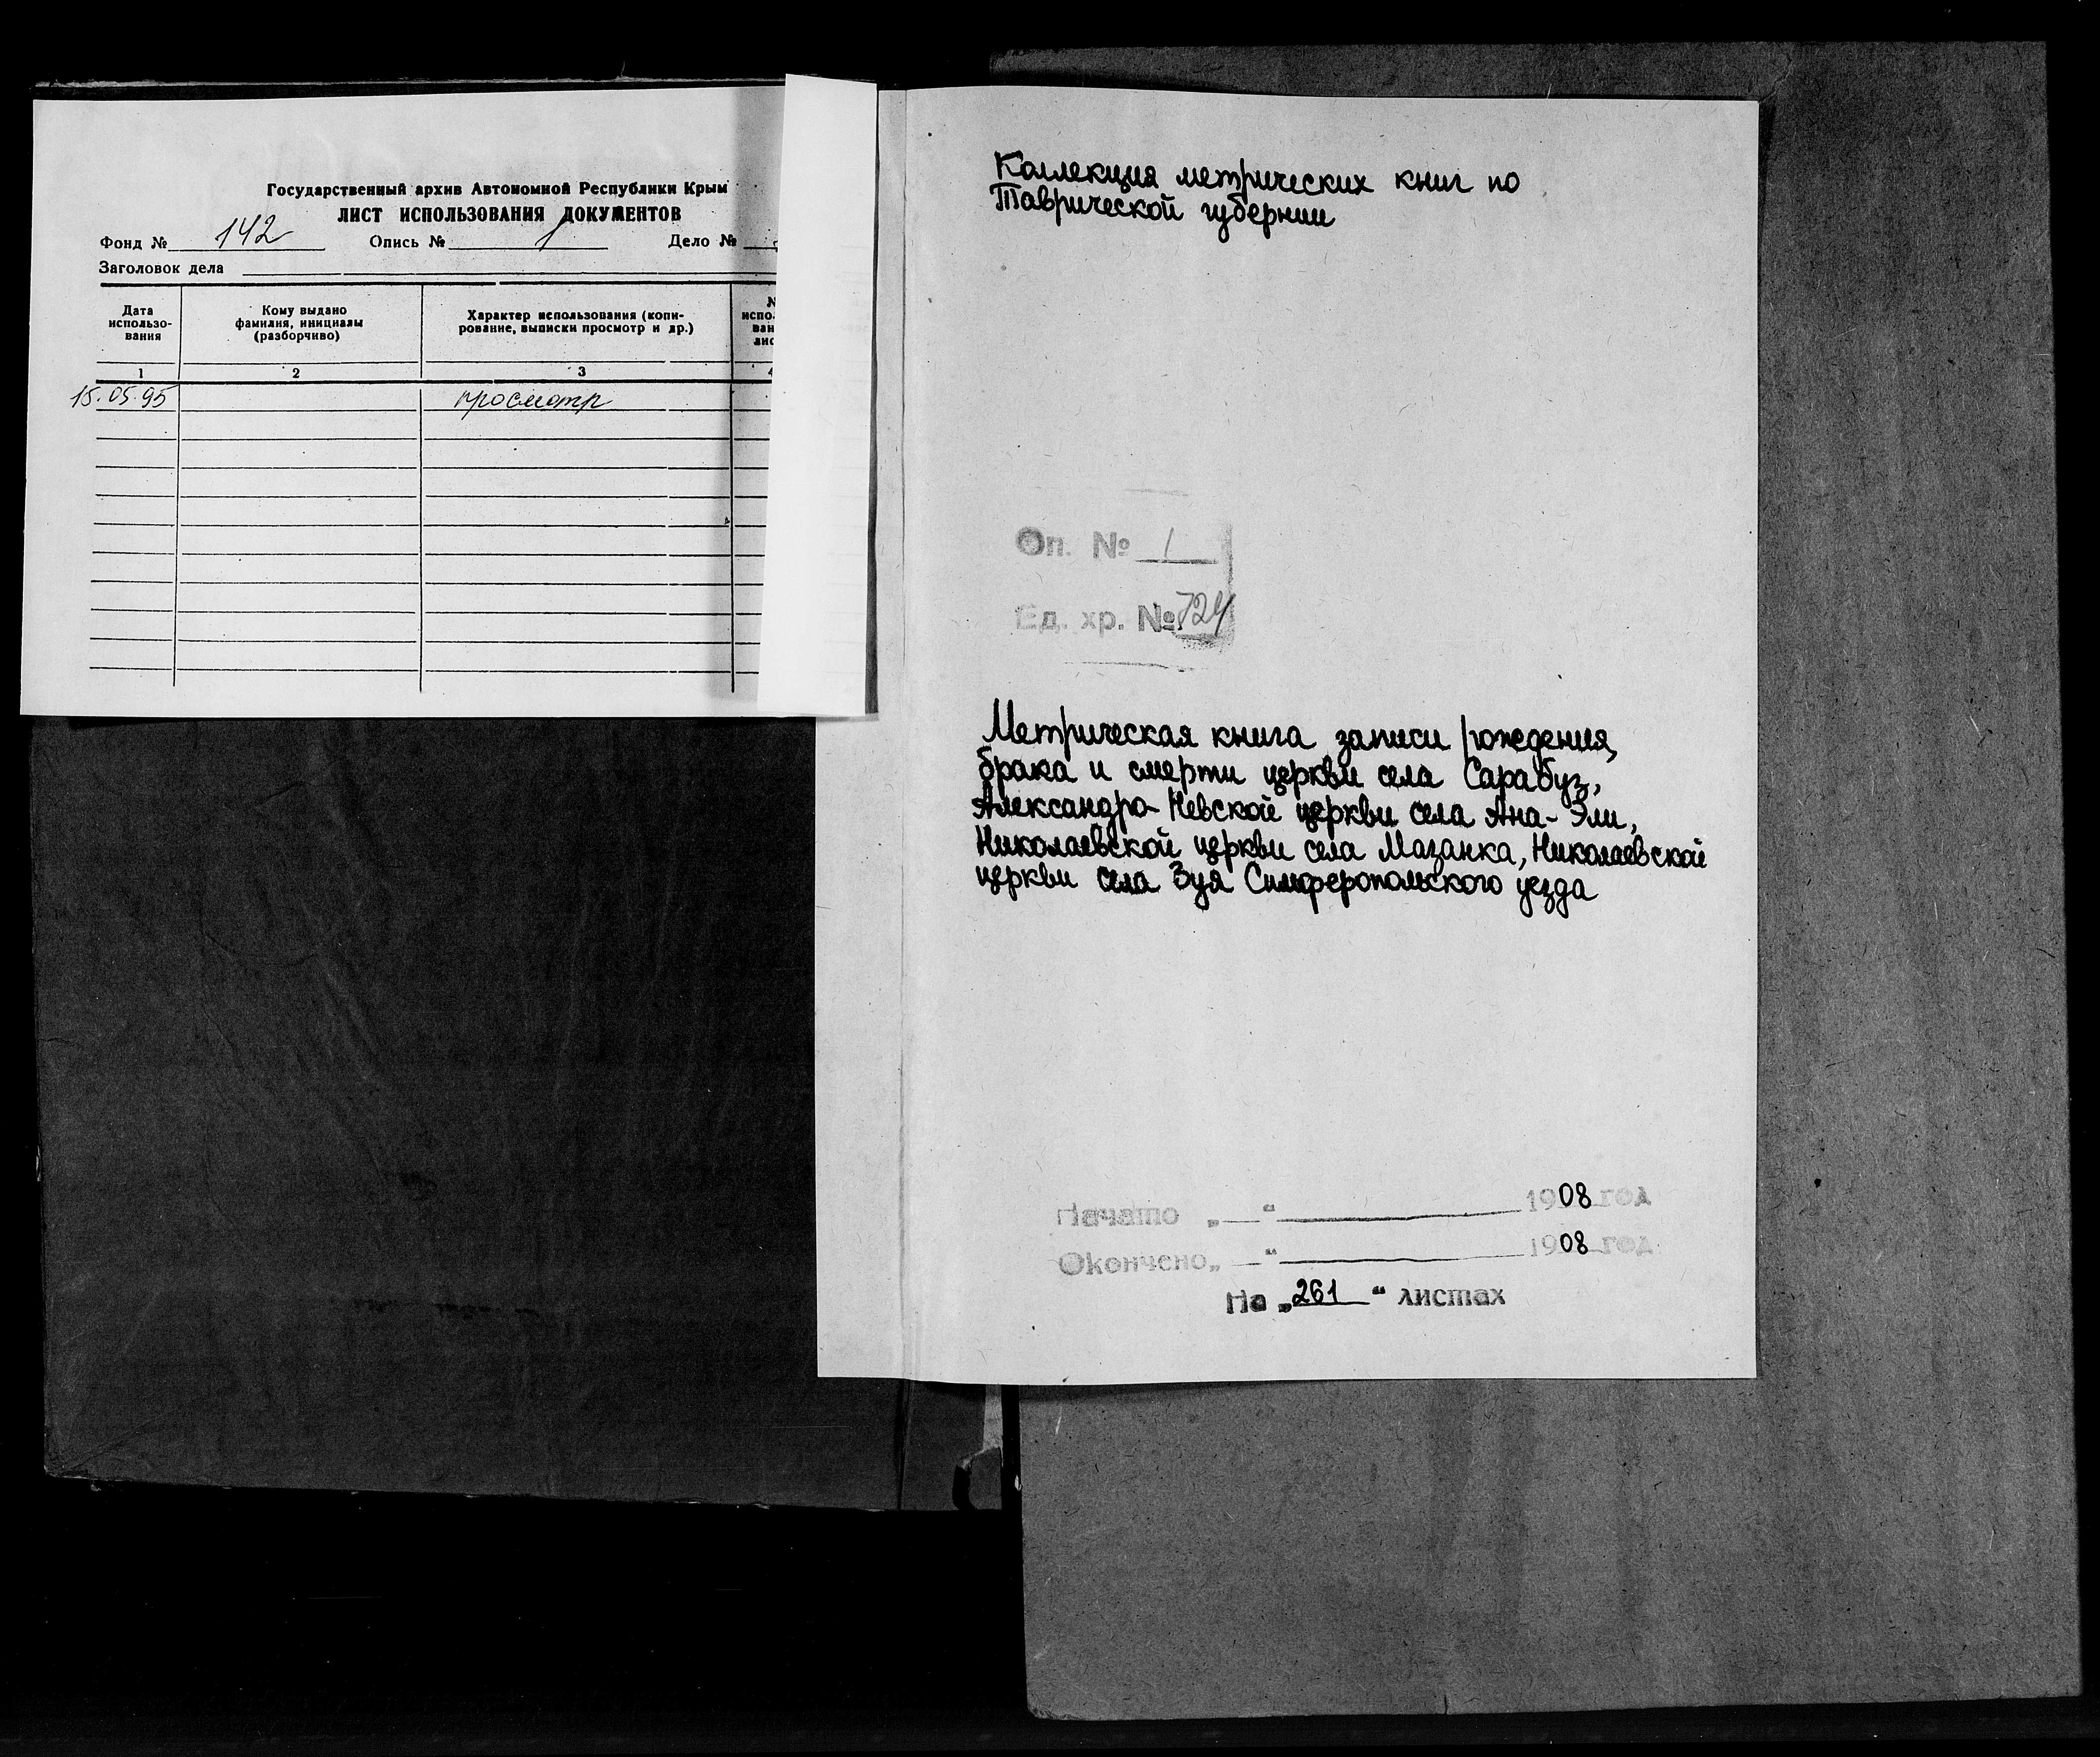 Государственный архив Автономной Республики Крым
ЛИСТ ИСПОЛЬЗОВАНИЯ ДОКУМЕНТОВ
Фонд № 142 Опись № 1 Дело №
Заголовок дела
Дата использо-вания
Кому выдано фамилия, инициалы (разборчиво)
Характер использования (копи-рование, выписки просмотр и др.)
1 2 3
15.05.95 просмотр
Коллекция метрических книг по
Таврической губернии
Оп. № 1
Ед. хр. № 724
Метрическая книга записи рождения,
брака и смерти церкви села Сарабуз,
Александро-Невской церкви села Ана-Эли,
Николаевской церкви села Мазанка, Николаевской
церкви села Зуя Симферопольского уезда
Начато „ “ 1908 год
Окончено „ “ 1908 год
На „261“ листах